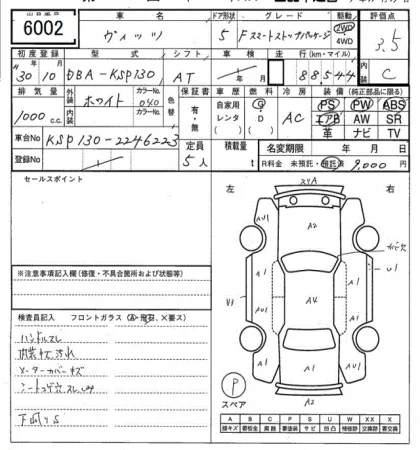 車名 ドア形状 グレード 駆動 評価点
6002 ヴィッツ 5 Fスマートストップパッケージ 2WD 4WD 3.5
初度登録 型式 シフト 車検 走行(km・マイル) 内装
30 10 DBA-KSP130 AT 年 月 88,544 C
排気量 外装 ホワイト カラーNo. 040 色替 保証書 車歴 燃料 冷房 装備(純正部品に限る)
1000 c.c. 内装 カラーNo. 有・無 自家用 レンタ G・D AC PS PW ABS
エアB AW SR
革 ナビ TV
車台No KSP130-2246223 定員 積載量 名変期限 年 月 日
登録No 5人 t R料金 未預託・預託済 9,000 円
セールスポイント
左 右
※注意事項記入欄(修復・不具合箇所および状態等)
検査員記入 フロントガラス(A・飛石、×要ス)
ハンドルスレ
内装キズ汚れ
メーターカバーキズ
シートコゲ穴スレ
下廻りS
A2
AU1
A1
A4
U1
カバー欠
P
スペア
A B C P S U W X XX
線キズ 要板金 腐蝕 要塗装 サビ 凹凸 補修跡 要交換 交換済